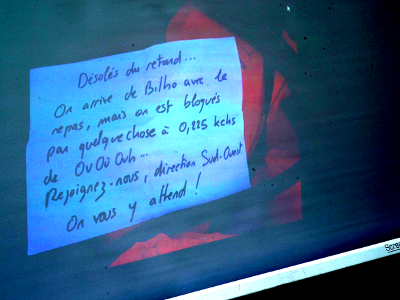 Désolés du retard...
On arrive de Bilho avec le
repas, mais on est bloqués
par quelque chose à 0,225 kchs
de OvOùOuh...
Rejoignez-nous, direction Sud-Ouest
On vous y attend !
Scre